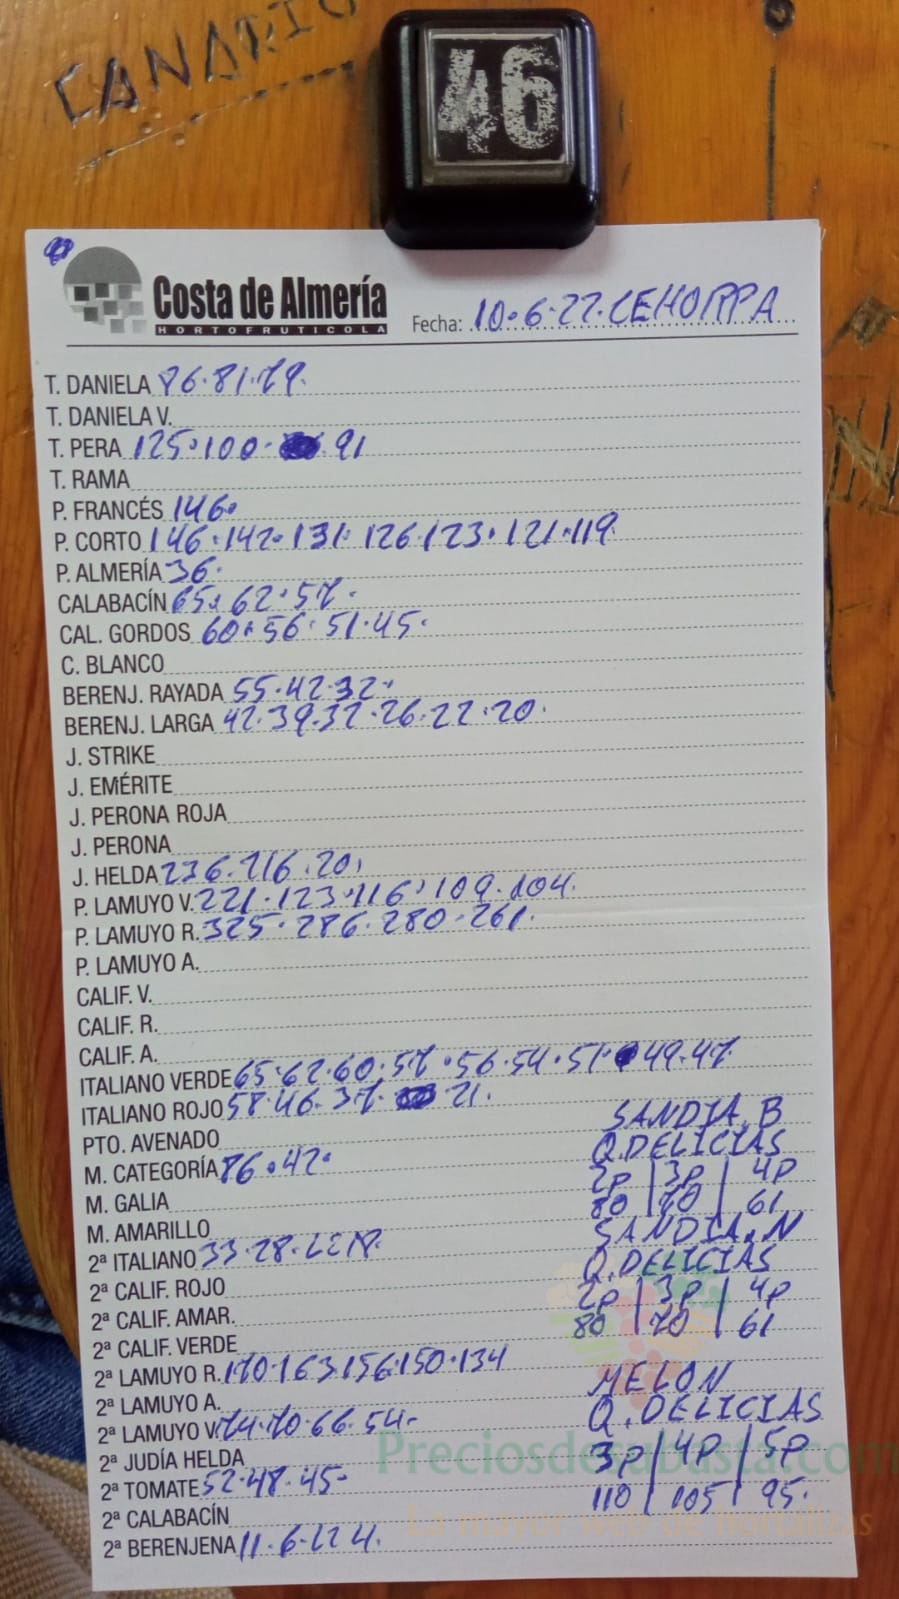 CANARIO
46
Costa de Almería
HORTOFRUTICOLA
Fecha: 10.6.22.CEHORPA
T. DANIELA 86.81.79.
T. DANIELA V.
T. PERA 125.100. .91
T. RAMA
P. FRANCÉS 146.
P. CORTO 146.142.131.126.123.121.119
P. ALMERÍA 36.
CALABACÍN 65.62.57.
CAL. GORDOS 60.56.51.45.
C. BLANCO
BERENJ. RAYADA 55.42.32.
BERENJ. LARGA 42.39.32.26.22.20.
J. STRIKE
J. EMÉRITE
J. PERONA ROJA
J. PERONA
J. HELDA 236.216.201
P. LAMUYO V. 221.123.116.109.104.
P. LAMUYO R. 325.286.280.261.
P. LAMUYO A.
CALIF. V.
CALIF. R.
CALIF. A.
ITALIANO VERDE 65.62.60.57.56.54.51. 49.47.
ITALIANO ROJO 58.46.37. .21.
PTO. AVENADO
M. CATEGORÍA 86.42.
M. GALIA
M. AMARILLO
2ª ITALIANO 33.28.
2ª CALIF. ROJO
2ª CALIF. AMAR.
2ª CALIF. VERDE
2ª LAMUYO R. 170.163.156.150.134
2ª LAMUYO A.
2ª LAMUYO V. 74.70.66.54.
2ª JUDÍA HELDA
2ª TOMATE 52.48.45.
2ª CALABACÍN
2ª BERENJENA 11.6.
SANDIA.B
Q.DELICIAS
2P | 3P | 4P
80 | 70 | 61
SANDIA.N
Q.DELICIAS
2P | 3P | 4P
80 | 70 | 61
MELON
Q.DELICIAS
3P | 4P | 5P
110 | 105 | 95.
Preciosdesubasta.com
La mayor web de hortalizas